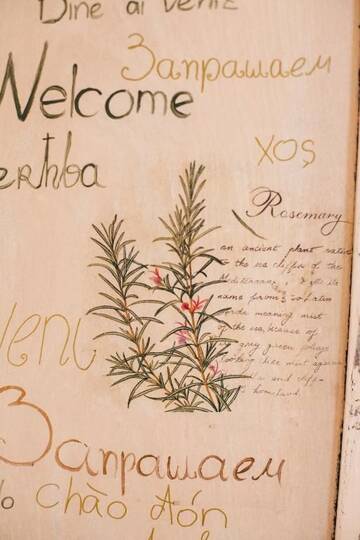 Dine ai veniz
Запрашаем
Welcome
xoş
Rosemary
an ancient plant native
to the sea cliffs of the
Mediterranean,
name from
words meaning mist
of the sea, because of
grey green foliage
looking like mist against
and cliff-
homeland.
Запрашаем
Chào đón